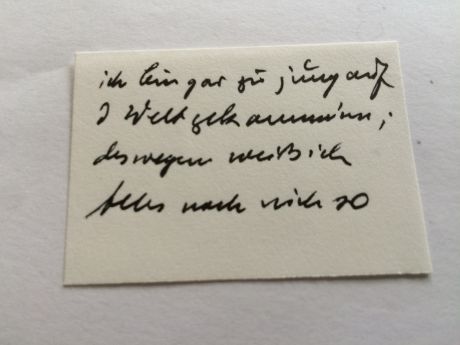 ich bin gar zu jung auf
d Welt gekommen,
deswegen weiß ich
Alles noch nich so